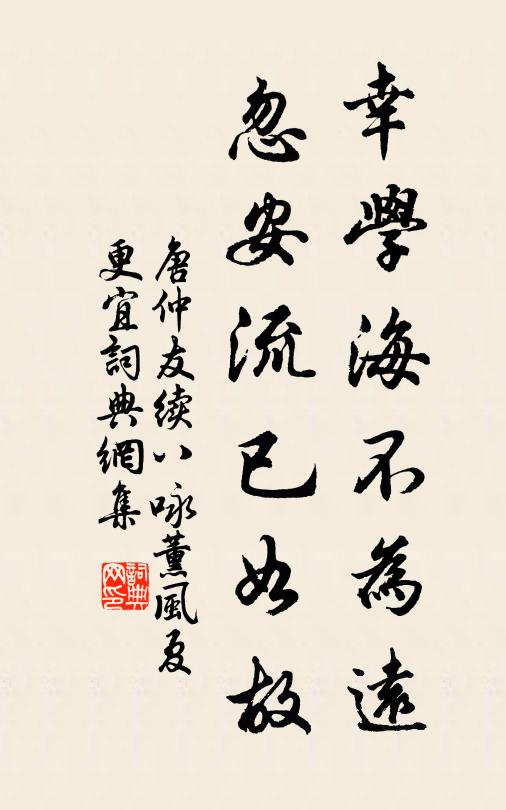 幸學海不為遠
忽安流已如故
唐仲友續八咏薰風夏
更宜詞典網集
詞典网印